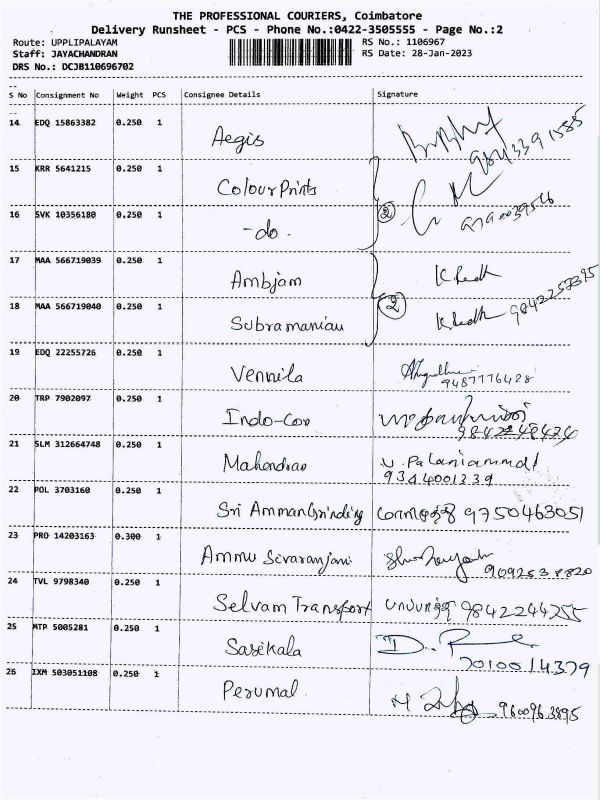 THE PROFESSIONAL COURIERS, Coimbatore
Delivery Runsheet - PCS - Phone No.:0422-3505555 - Page No.:2
Route: UPPLIPALAYAM RS No.: 1106967
Staff: JAYACHANDRAN RS Date: 28-Jan-2023
DRS No.: DCJB110696702
S No Consignment No Weight PCS Consignee Details Signature
14 EDQ 15863382 0.250 1 Aegis
15 KRR 5641215 0.250 1 Colour Prints
16 SVK 10356180 0.250 1 -do. 2
17 MAA 566719039 0.250 1 Ambjam
18 MAA 566719040 0.250 1 Subramanian 2 9842257395
19 EDQ 22255726 0.250 1 Vennila 9487776428
20 TRP 7902097 0.250 1 Indo-Cov
21 SLM 312664748 0.250 1 Mahendran U. Palaniammal
9344001239
22 POL 3703160 0.250 1 Sri Amman Grinding 9750463051
23 PRO 14203163 0.300 1 Ammu Sivaranjani
24 TVL 9798340 0.250 1 Selvam Transport 9842244255
25 MTP 5005281 0.250 1 Sasikala
7010014379
26 IXM 503051108 0.250 1 Perumal 9600963895